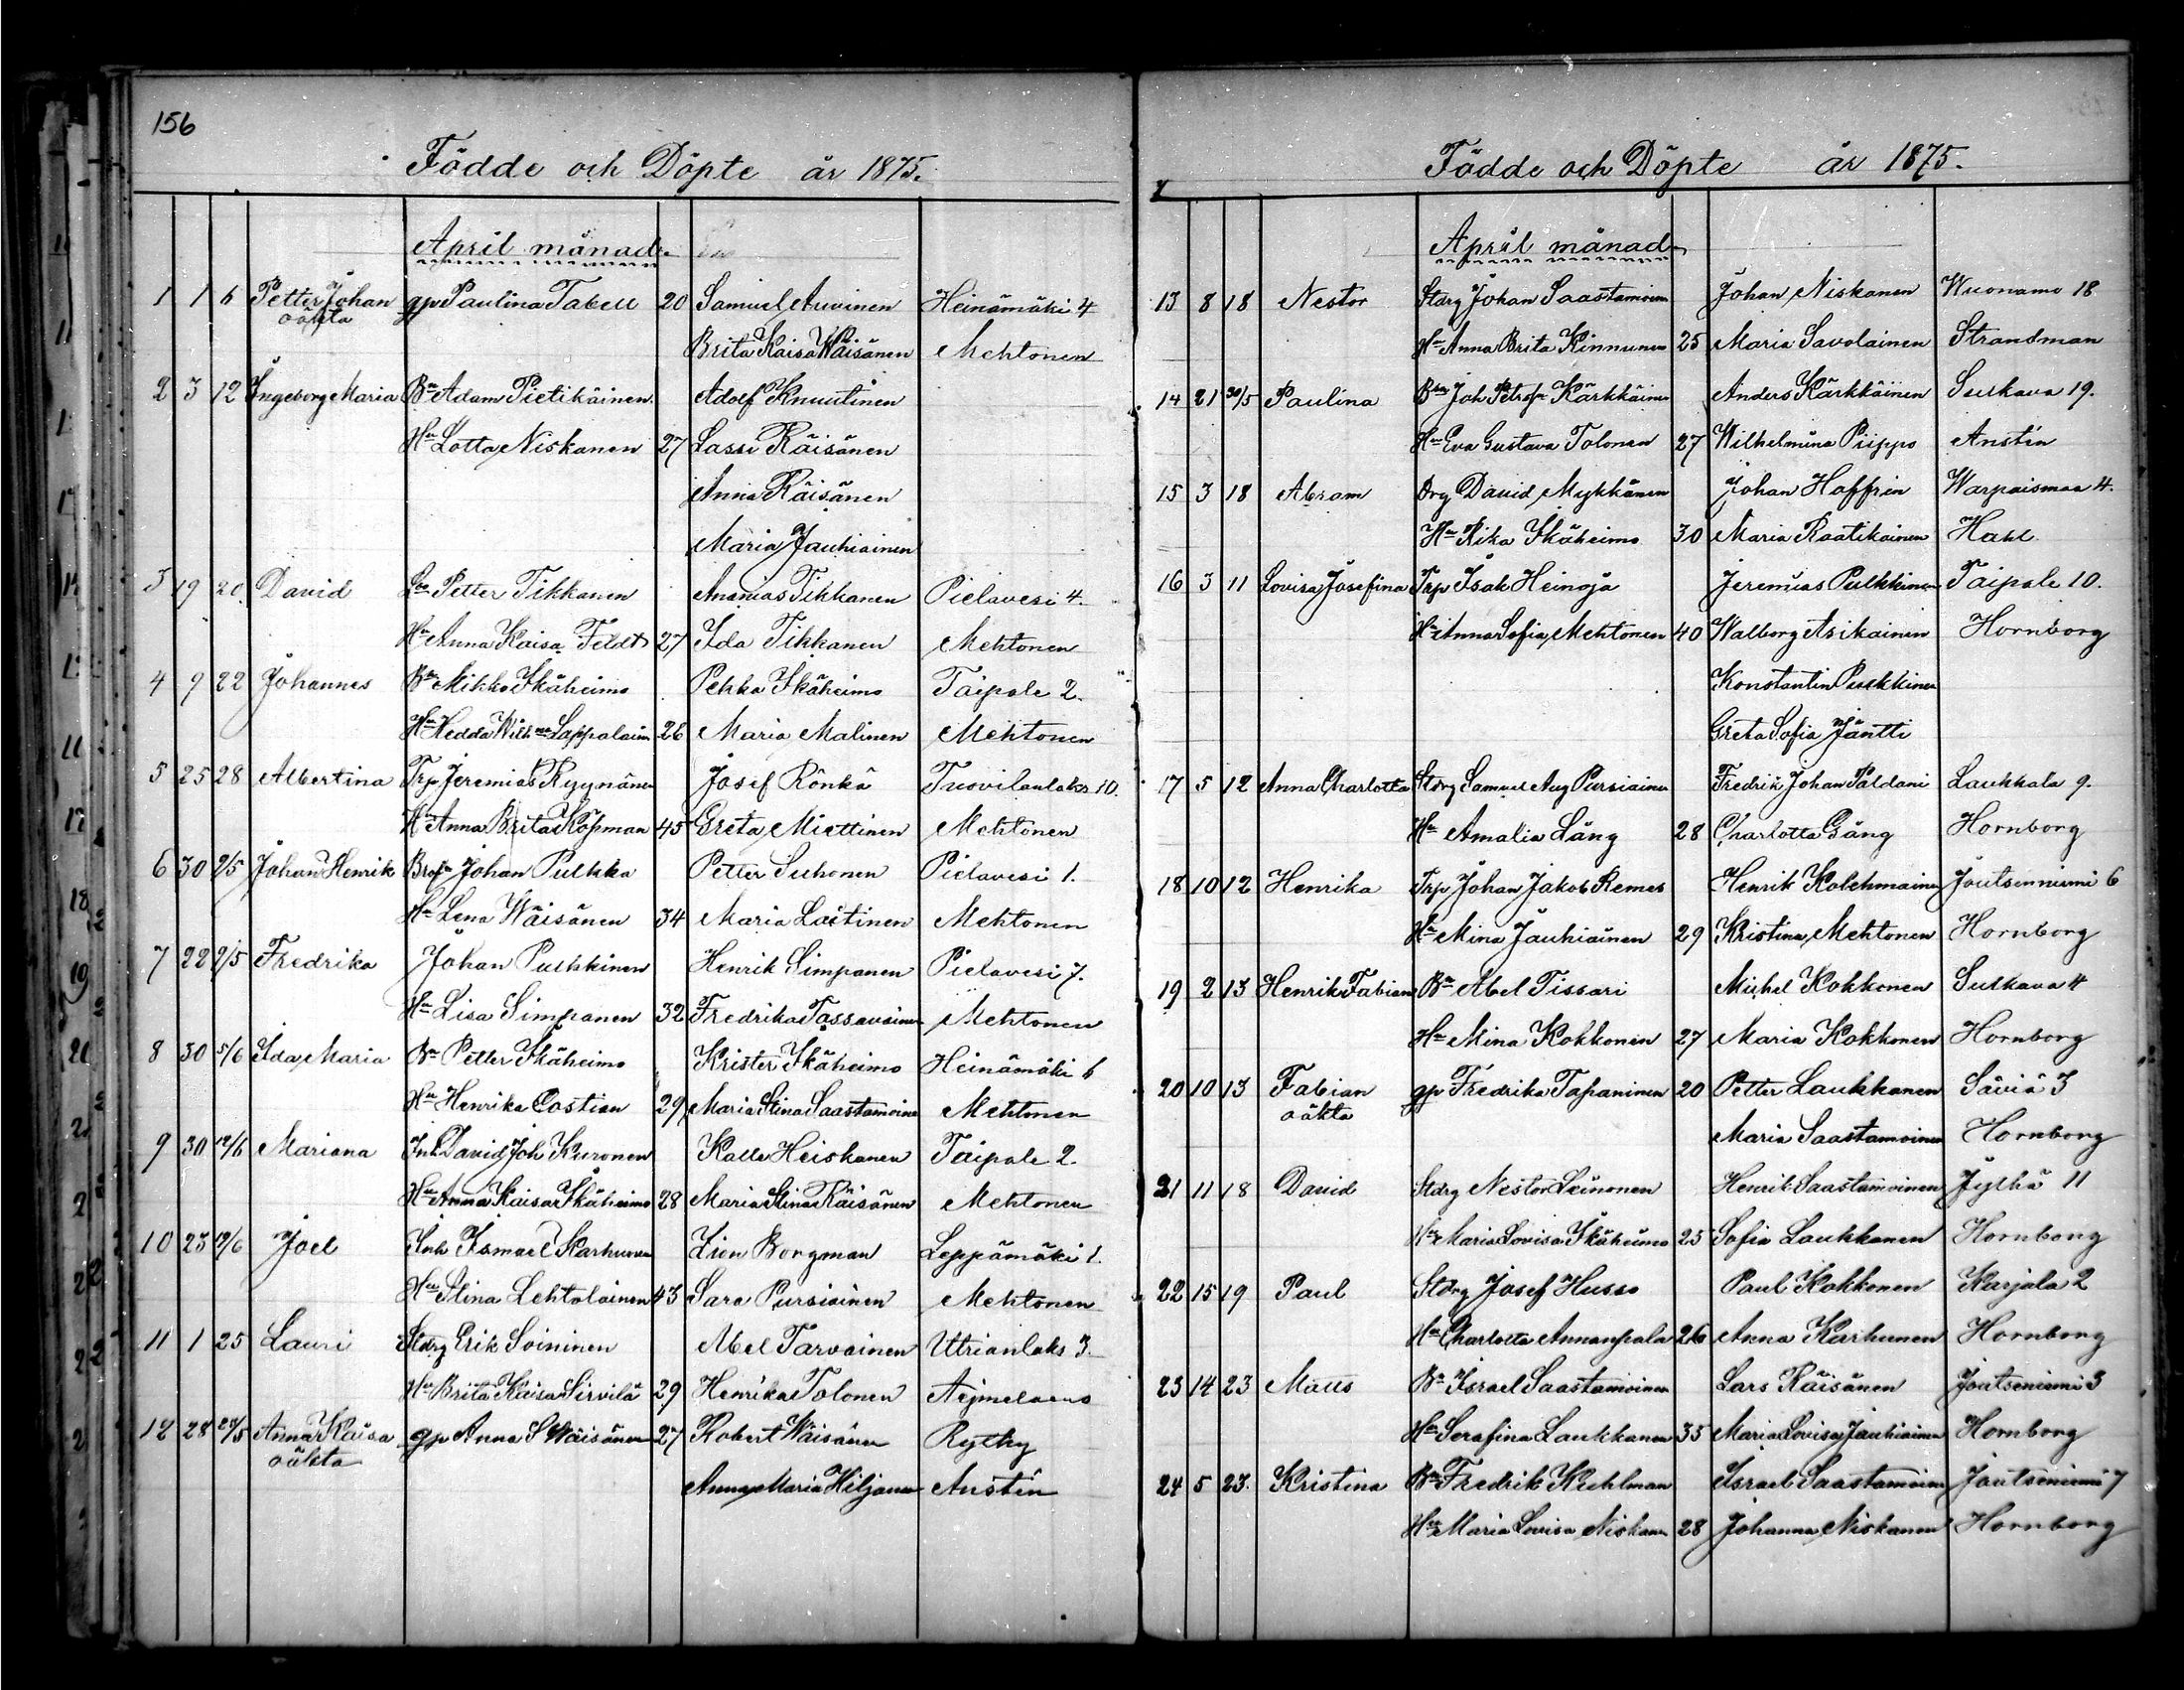 156
Födde och Döpte år 1875.
April månad
1 1 6 Petter Johan gp Paulina Tabell 20 Samuel Auvinen Heinämäki 4
oäkta
Brita Kaisa Wäisänen Mehtonen
2 3 12 Ingeborg Maria Bn Adam Pietikäinen Adolf Knuutinen
Hu Lotta Niskanen 27 Lassi Räisänen
Anna Räisänen
Maria Jauhiainen
3 19 20 David Petter Tikkanen Ananias Tikkanen Pielavesi 4.
Hu Anna Kaisa Feldt 27 Ida Tikkanen Mehtonen
4 9 22 Johannes Mikko Ikäheimo Pekka Ikäheimo Taipale 2.
Hu Hedda Wilhna Lappalain 26 Maria Malinen Mehtonen
5 25 28 Albertina Trp Jeremias Ryynänen Josef Rönkä Tuovilanlaks 10.
Hu Anna Brita Kopman 45 Greta Miettinen Mehtonen
6 30 2/5 Johan Henrik Johan Pulkka Petter Suhonen Pielavesi 1.
Hu Lena Wäisänen 34 Maria Laitinen Mehtonen
7 22 2/5 Fredrika Johan Pulkkinen Henrik Simpanen Pielavesi 7.
Hu Lisa Simpanen 32 Fredrika Tossavainen Mehtonen
8 30 5/6 Ida Maria Bn Petter Ikäheimo Krister Ikäheimo Heinämäki 6
Hu Henrika Costian 29 Maria Stina Saastamoinen Mehtonen
9 30 12/6 Mariana Inh David Joh Kuronen Kalle Heiskanen Taipale 2.
Hu Anna Kaisa Ikäheimo 28 Maria Stina Räisänen Mehtonen
10 23 19/6 Joel Inh Ismael Karhunen Zion Borgman Leppämäki 1.
Hu Stina Lehtolainen 43 Sara Pursiainen Mehtonen
11 1 25 Lauri Stdrg Erik Soininen Abel Tarvainen Utrianlaks 3.
Hu Brita Kaisa Sirvilä 29 Henrika Tolonen Aejmelaeus
12 28 28/5 Anna Kaisa gp Anna S Wäisänen 27 Robert Wäisänen Rytky
oäkta
Anna Maria Hiljanen Austin
Födde och Döpte år 1875.
April månad
13 8 18 Nestor Stdrg Johan Saastamoinen Johan Niskanen Wuonamo 18
Hu Anna Brita Kinnunen 25 Maria Savolainen Strandman
14 21 30/5 Paulina Joh Petrsn Kärkkäinen Anders Kärkkäinen Sulkava 19.
Hu Eva Gustava Tolonen 27 Wilhelmina Piippo Anstin
15 3 18 Abram Drg David Mykkänen Johan Hoffrén Warpaismaa 4.
Hu Rika Ikäheimo 30 Maria Raatikainen Hahl
16 3 11 Lovisa Josefina Trp Isak Heinoja Jeremias Pulkkinen Taipale 10.
Hu Anna Sofia Mehtonen 40 Walborg Asikainen Hornborg
Konstantin Pulkkinen
Greta Sofia Jäntti
17 5 12 Anna Charlotta Stdrg Samuel Aug Pursiainen Fredrik Johan Paldani Laukkala 9.
Hu Amalia Lång 28 Charlotta Gång Hornborg
18 10 12 Henrika Trp Johan Jakob Remes Henrik Kolehmainen Joutsenniemi 6
Hu Mina Jauhiainen 29 Kristina Mehtonen Hornborg
19 2 13 Henrik Fabian Bn Abel Tissari Michel Kokkonen Sulkava 4
Hu Mina Kokkonen 27 Maria Kokkonen Hornborg
20 10 13 Fabian gp Fredrika Tapaninen 20 Petter Laukkanen Säviä 3
oäkta
Maria Saastamoinen Hornborg
21 11 18 David Stdrg Nestor Leinonen Henrik Saastamoinen Jylhä 11
Hu Maria Lovisa Ikäheimo 25 Sofia Laukkanen Hornborg
22 15 19 Paul Stdrg Josef Husso Paul Kokkonen Karjala 2
Hu Charlotta Annanpala 26 Anna Karhunen Hornborg
23 14 23 Matts Bn Israel Saastamoinen Lars Räisänen Joutseniemi 3
Hu Serafina Laukkanen 35 Maria Lovisa Jauhiainen Hornborg
24 5 23. Kristina Bn Fredrik Kuhlman Israel Saastamoinen Joutseniemi 7
Hu Maria Lovisa Niskanen 28 Johanna Niskanen Hornborg